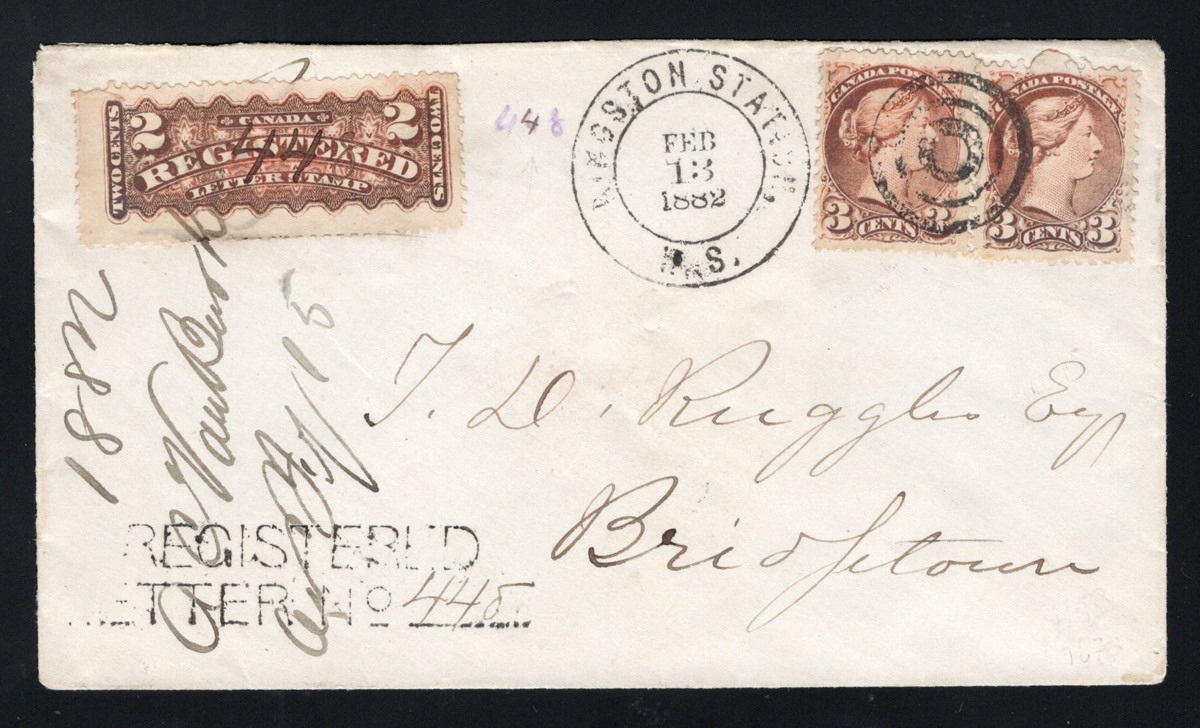 TWO CENTS
2
CANADA
2
REGISTERED
LETTER STAMP
TWO CENTS
448
KINGSTON STATION,
FEB
13
1882
N.S.
CANADA POSTAGE
3 CENTS 3
CANADA POSTAGE
3 CENTS 3
1882
T. D. Ruggles Esq
Bridgetown
REGISTERED
LETTER No 448